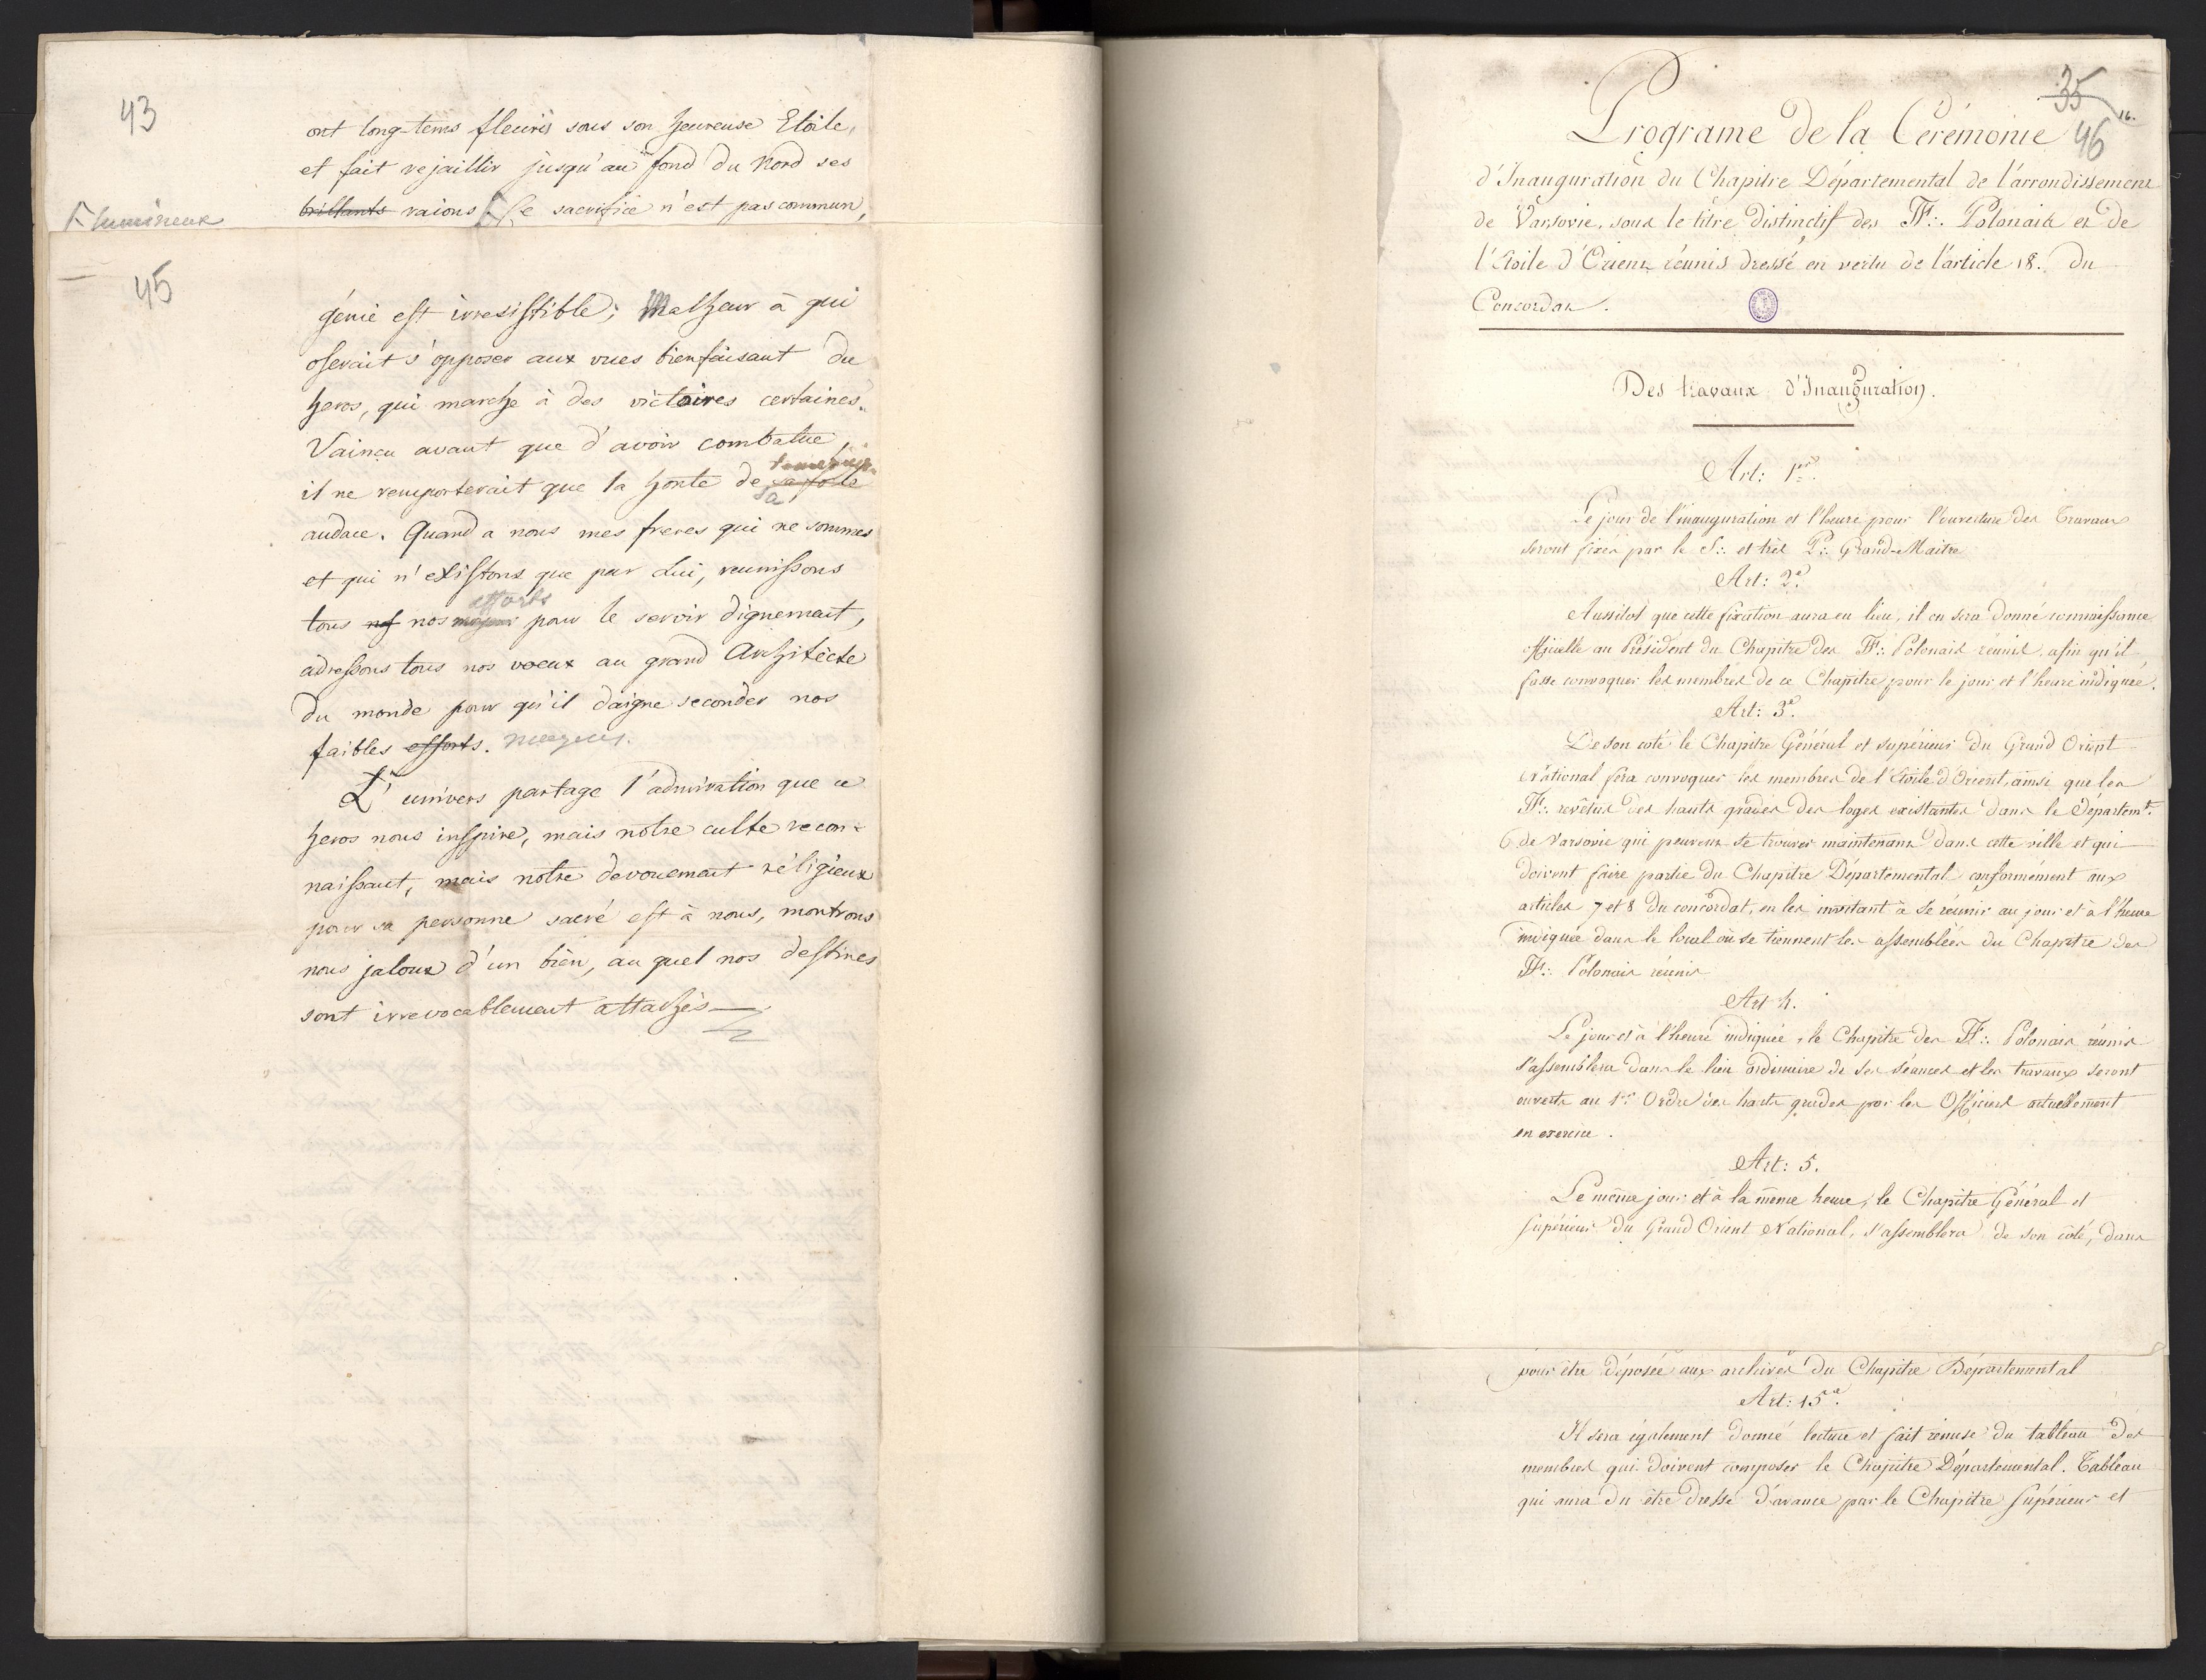 43
ont long-tems fleuris sous son heureuse Etoile,
et fait rejaillir jusqu'au fond du Nord ses
brillants raions. Ce sacrifice n'est pas commun,
lumineux
45
génie est irresistible; Malheur à qui
oserait s'opposer aux vues bienfaisant du
heros, qui marche à des victoires certaines.
Vaincu avant que d'avoir combatue,
il ne remporterait que la honte de sa folle
sa
audace. Quand a nous mes freres qui ne sommes
et qui n'existons que par Lui, reunissons
efforts
tous nos nos moyens pour le servir dignement,
adressons tous nos voeux au grand Architecte
du monde pour qu'il daigne seconder nos
faibles efforts. moyens.
L'univers partage l'admiration que ce
heros nous inspire, mais notre culte recon-
naissant, mais notre devouement réligieux
pour sa personne sacré est à nous, montrons
nous jaloux d'un bien, au quel nos destines
sont irrevocablement attachés
35
16.
46
Programe de la Cérémonie
d'Inauguration du Chapitre Départemental de l'arrondissement
de Varsovie, sous le titre distinctif des FF∴ Polonais et de
l'Etoile d'Orient réunis dressé en vertu de l'article 18. du
Concordat.
Des travaux d'Inauguration.
Art: 1er.
Le jour de l'inauguration et l'heure pour l'ouverture des Travaux
seront fixés par le S∴ et très P∴ Grand-Maitre
Art: 2e.
Aussitot que cette fixation aura eu lieu, il en sera donné connaissance
officielle au Président du Chapitre des FF∴ Polonais réunis, afin qu'il
fasse convoquer les membres de ce Chapitre pour le jour et l'heure indiquée.
Art: 3e.
De son coté le Chapitre Général et supérieur du Grand Orient
National fera convoquer les membres de l'Etoile d'Orient, ainsi que les
FF∴ revêtus des hauts grades des loges existantes dans le Départemt.
de Varsovie qui peuvent se trouver maintenant dans cette ville et qui
doivent faire partie du Chapitre Départemental conformément aux
articles 7 et 8 du concordat, en les invitant à se réunir au jour et à l'heure
indiquée dans le local où se tiennent les assemblées du Chapitre des
FF∴ Polonais réunis
Art 4.
Le jour et à l'heure indiquée, le Chapitre des FF∴ Polonais réunis
s'assemblera dans le lieu ordinaire de ses séances et les travaux seront
ouverts au 1er Ordre des hauts grades par les Officiers actuellement
en exercice.
Art: 5.
Le même jour et à la même heure, le Chapitre Général et
supérieur du Grand Orient National, s'assemblera de son côté, dans
pour être déposée aux archives du Chapitre Départemental
Art: 15e.
Il sera également donné lecture et fait remise du tableau des
membres qui doivent composer le Chapitre Départemental. Tableau
qui aura du être dressé d'avance par le Chapitre supérieur et